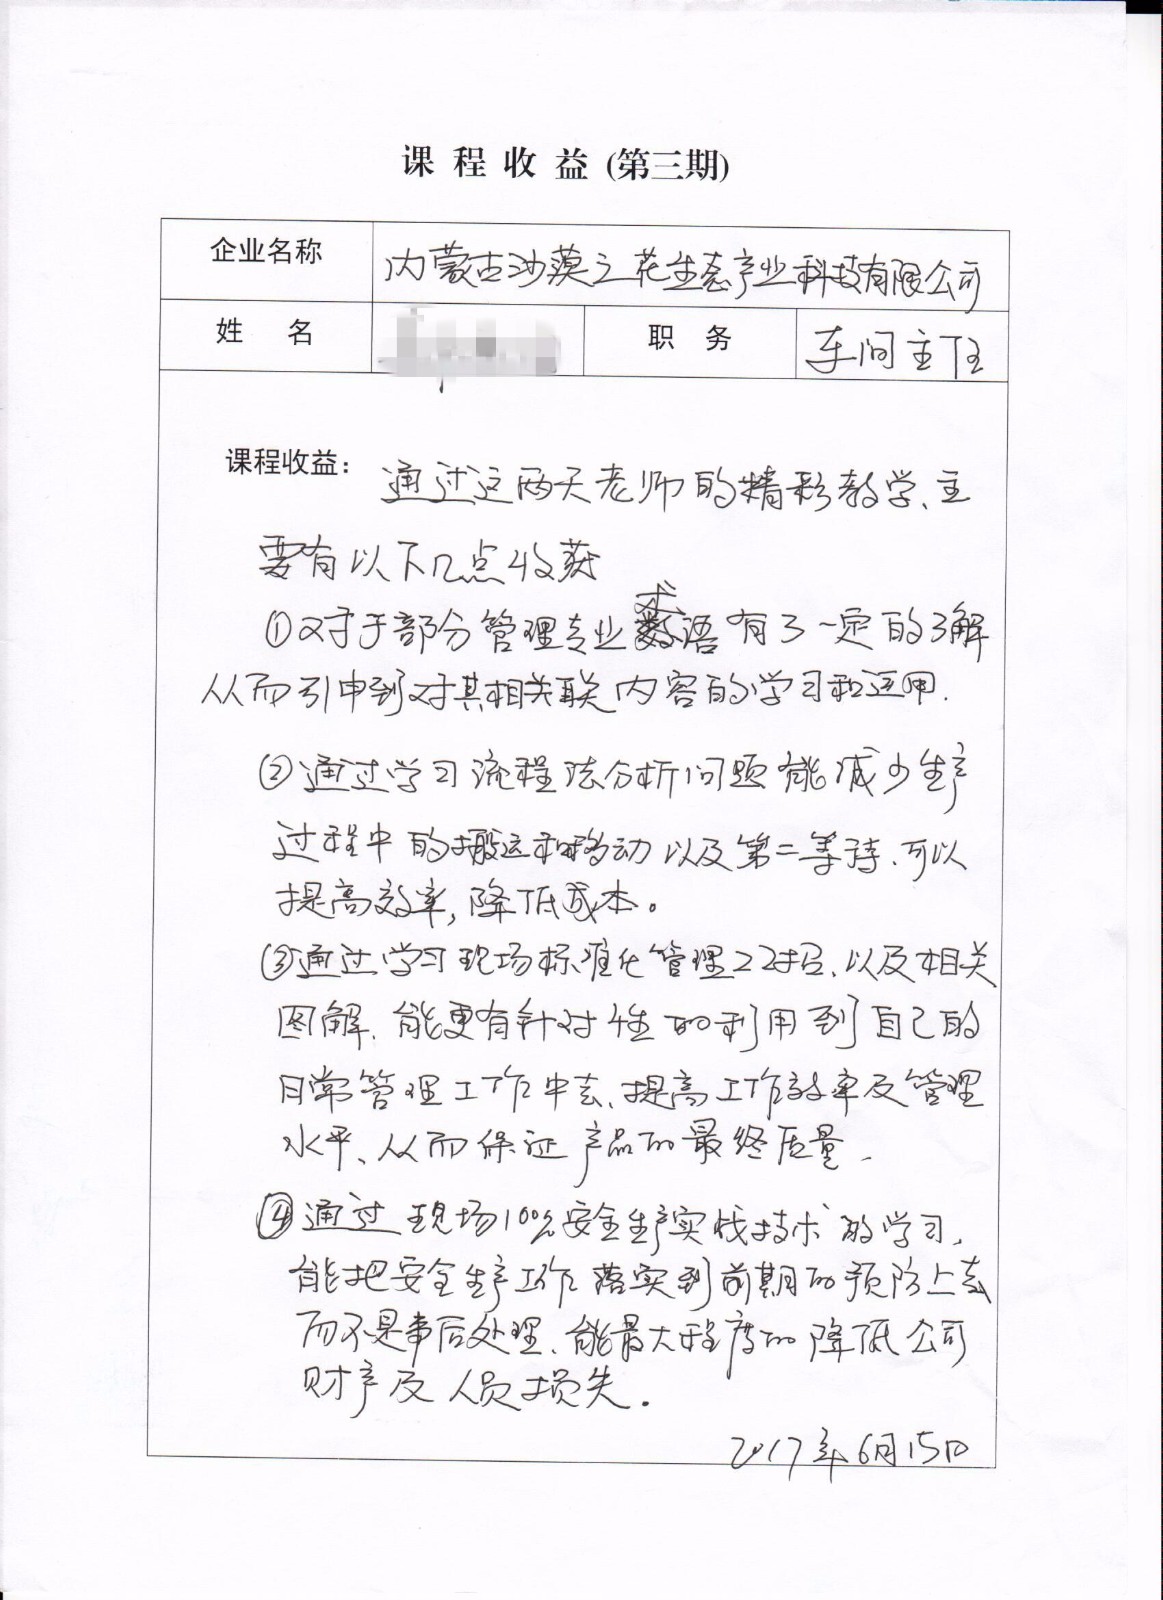 课程收益(第三期)
企业名称 内蒙古沙漠之花生态产业科技有限公司
姓名 职务 车间主任
课程收益: 通过这两天老师的精彩教学、主
要有以下几点收获
①对于部分管理专业术语有了一定的了解
从而引申到对其相关联内容的学习和运用.
②通过学习流程法分析问题能减少生产
过程中的搬运和移动以及第二等待、可以
提高效率,降低成本。
③通过学习现场标准化管理22招、以及相关
图解、能更有针对性的利用到自己的
日常管理工作中去、提高工作效率及管理
水平、从而保证产品的最终质量.
④通过现场100%安全生产实战技术的学习,
能把安全生产工作落实到前期的预防上去
而不是事后处理、能最大程度的降低公司
财产及人员损失.
2017年6月15日